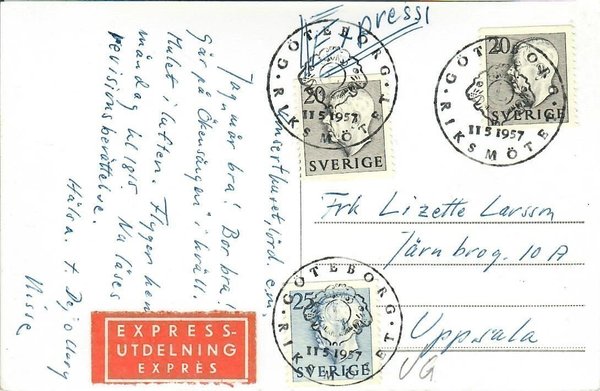 Expressi
Konserthuset, lörd. e.m.
Jag mår bra! Bor bra!
Går på "Ökensången" i kväll.
Hulet i luften. Flyger hem
måndag kl 18.15. Nu läses
revisionsberättelse.
Hälsn. t. Dej o Mary
Nisse
EXPRESS-
UTDELNING
EXPRÈS
20
SVERIGE
GÖTEBORG
11 5 1957
RIKSMÖTET
20
SVERIGE
GÖTEBORG
11 5 1957
RIKSMÖTET
Frk Lizette Larsson
Järnbrog. 10 A
Uppsala
25
SVERIGE
GÖTEBORG
11 5 1957
RIKSMÖTET